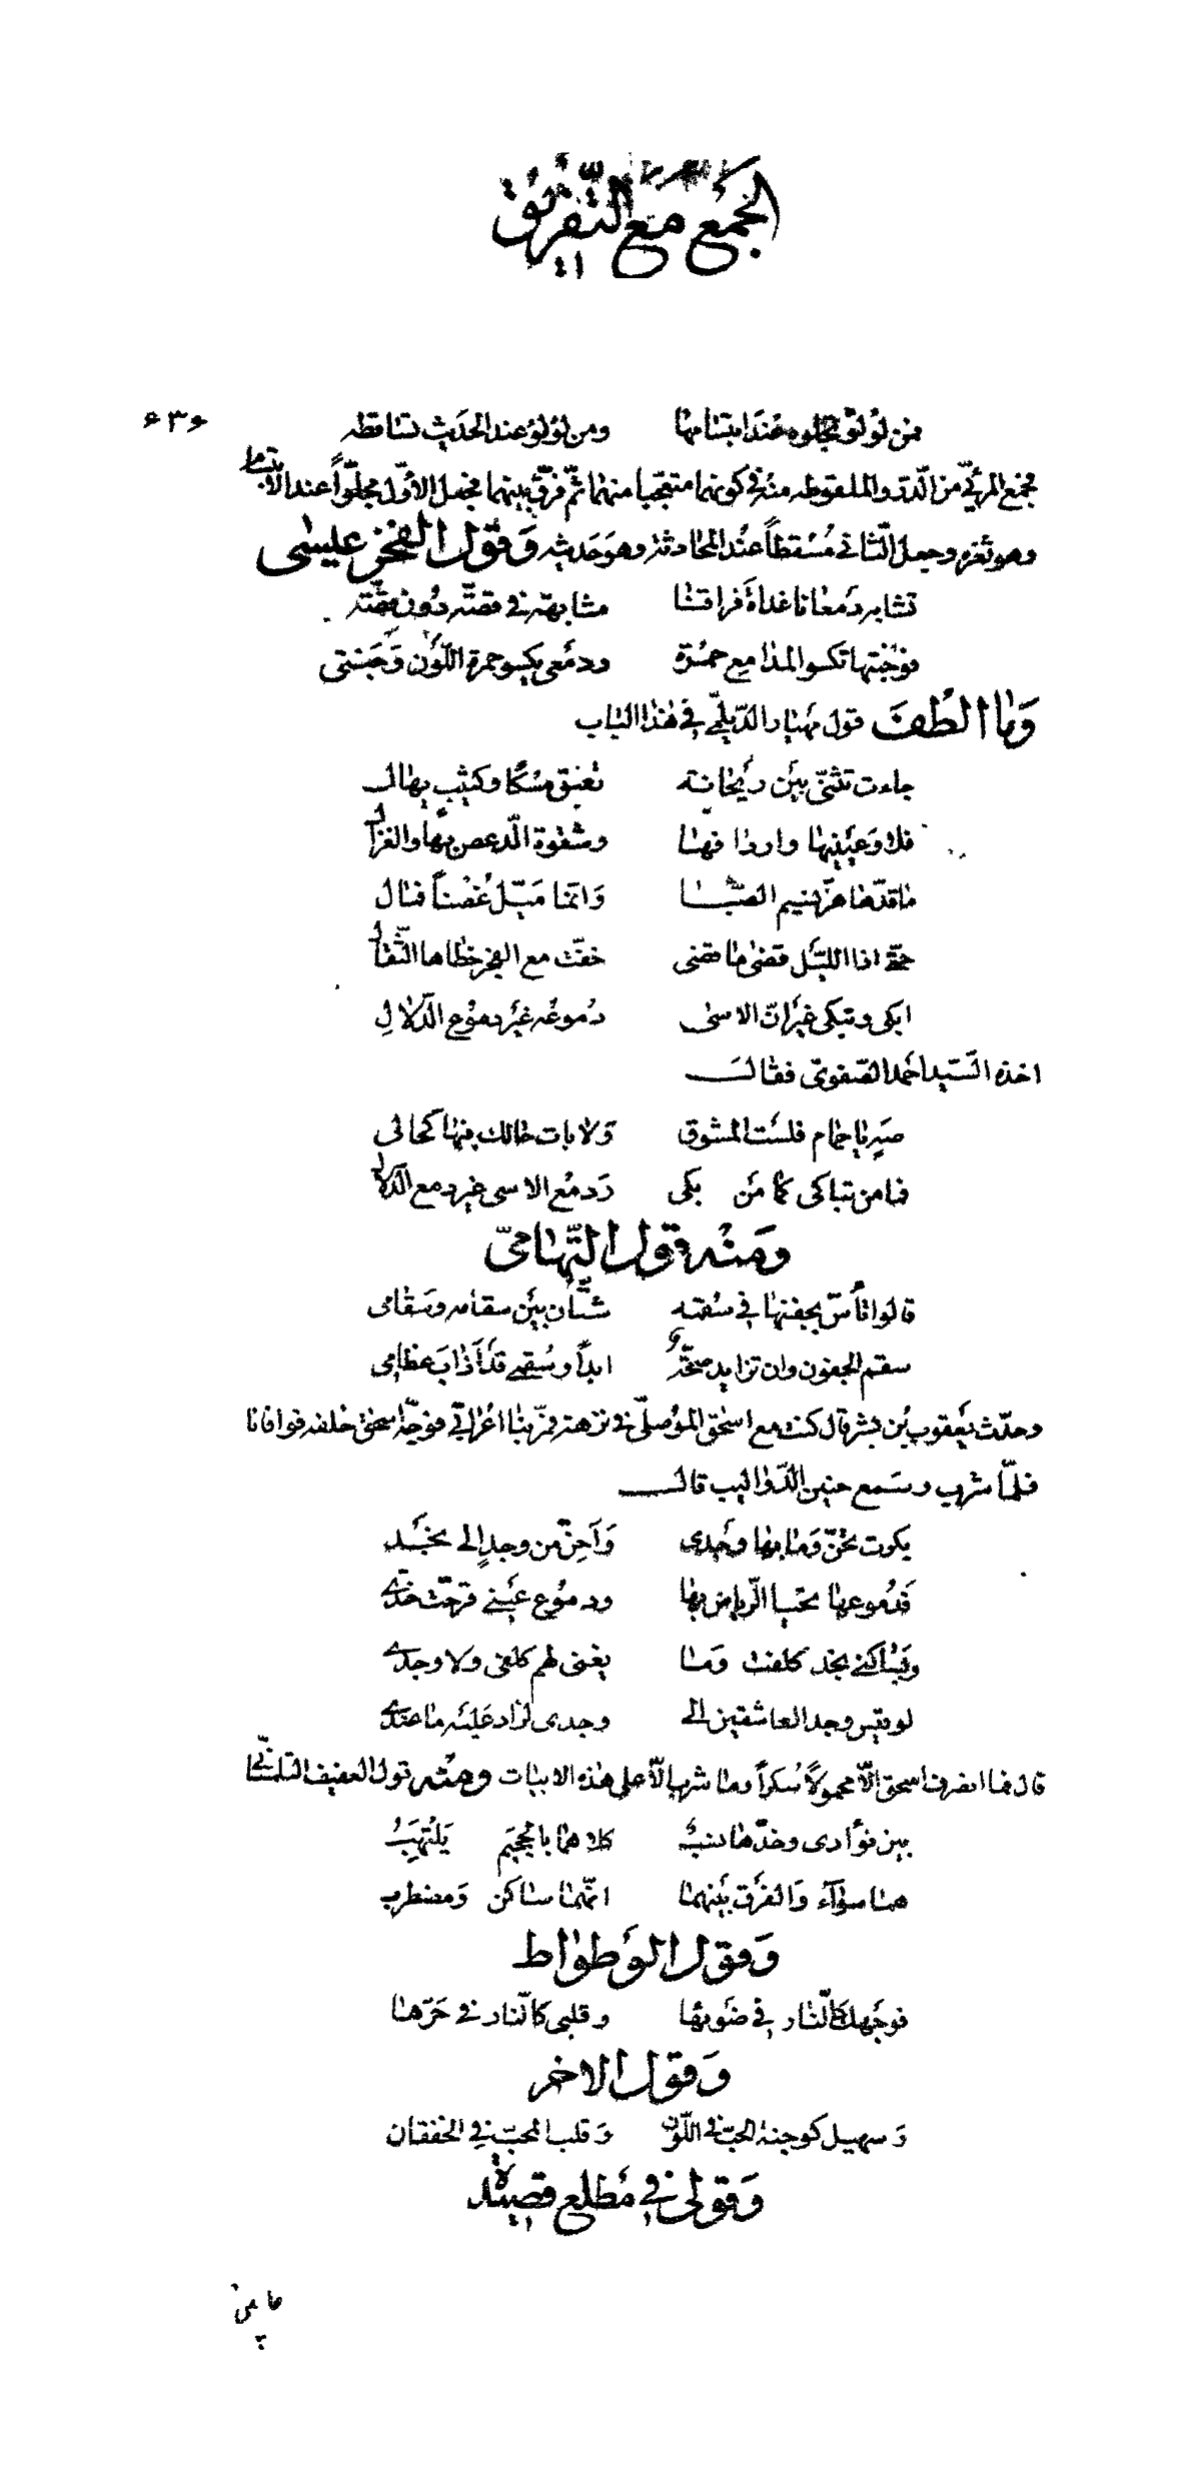 الجمع مع التفريق
۶۳۶
فمن لؤلؤ تجلوه عند ابتسامها ومن لؤلؤ عند الحديث تساقطه
فجمع المرئيّ من الدّر والملقوطه منه في كونهما متعجّبا منهما ثمّ فرّق بينهما فجعل الاوّل مجلوّاً عند الابتسام
وهو ثغره وجعل الثاني مُسْقطاً عند المحادثة وهو حديثه وَقول الفخر عيسى
تشابه دمعانا غداة فراقنا مشابهة في قصّة دون قصّة
فوجنتها تكسو المدامع حمرة ودمعي يكسو حمرة اللّون وجنتي
وَما الطفَ قول مهيار الدّيلمي في هذا الباب
جاءت تثنّى بين ريحانة تعبق مسكا وكثيب يهال
فلا وعينيها واردافها وشقوة الدّعص بها والغزال
ما قدّها هزّ نسيم الصّبا وَانّما ميّل غُصْناً فمال
حتّى اذا اللّيل قضى ما قضى خفّت مع الفجر خطاها الثّقال
ابكى وتبكى غير انّ الاسى دُموعُه غير دموع الدّلالِ
اخذه السّيد احمد الصّفوىّ فقال
صبر يا حمام فلست المشوق وَلا بات حالك فيها كحالى
فما من تباكى كما من بكى وَدمع الاسى غير دمع الدّلال
ومَنْه قول التّهامىّ
قالوا تأسّ بجفنها في سقمه شتّان بين سقامه وسقامى
سقم الجفون وان تزايد صحّة ابداً وسُقمي قد أذاب عظامى
وحدّث يعقوب بن بشر قال كنت مع اسحق الموصلّى في نزهة فمرّ بنا اعرابي فوجّه اسحق خلفه فوافانا
فلمّا شرب وسَمع حنين الدّواليب قال
بكرت تحنّ وَما بها وجدى وَأحنّ من وجدٍ الى نجد
فَدُموعها تحيا الرّياض بها ودموع عيني قرحت خدّي
وبساكني نجد كلفت وَما يغنى لهم كلفى ولا وجدي
لو قيس وجد العاشقين الى وجدى لزاد عليه ما عندي
قال فما انصرف اسحق الّا محمولاً سُكراً وما شرب الّا على هذه الابيات ومنه قول العفيف التلمسّاني
بين فؤادى وخدّها نسبٌ كلاهما بالجحيم يَلْتهِبُ
هما سوآء وَالفرق بينهما انّهما ساكن وَمضطرب
وَقول الوَطواط
فوجهك كالنّار في ضوئها وقلبى كالنّار في حَرّها
وَقول الاخر
وَسهيل كوجنة الحبّ في اللّون وَقلب المحبّ في الخفقان
وَقولي في مَطلع قصيدة